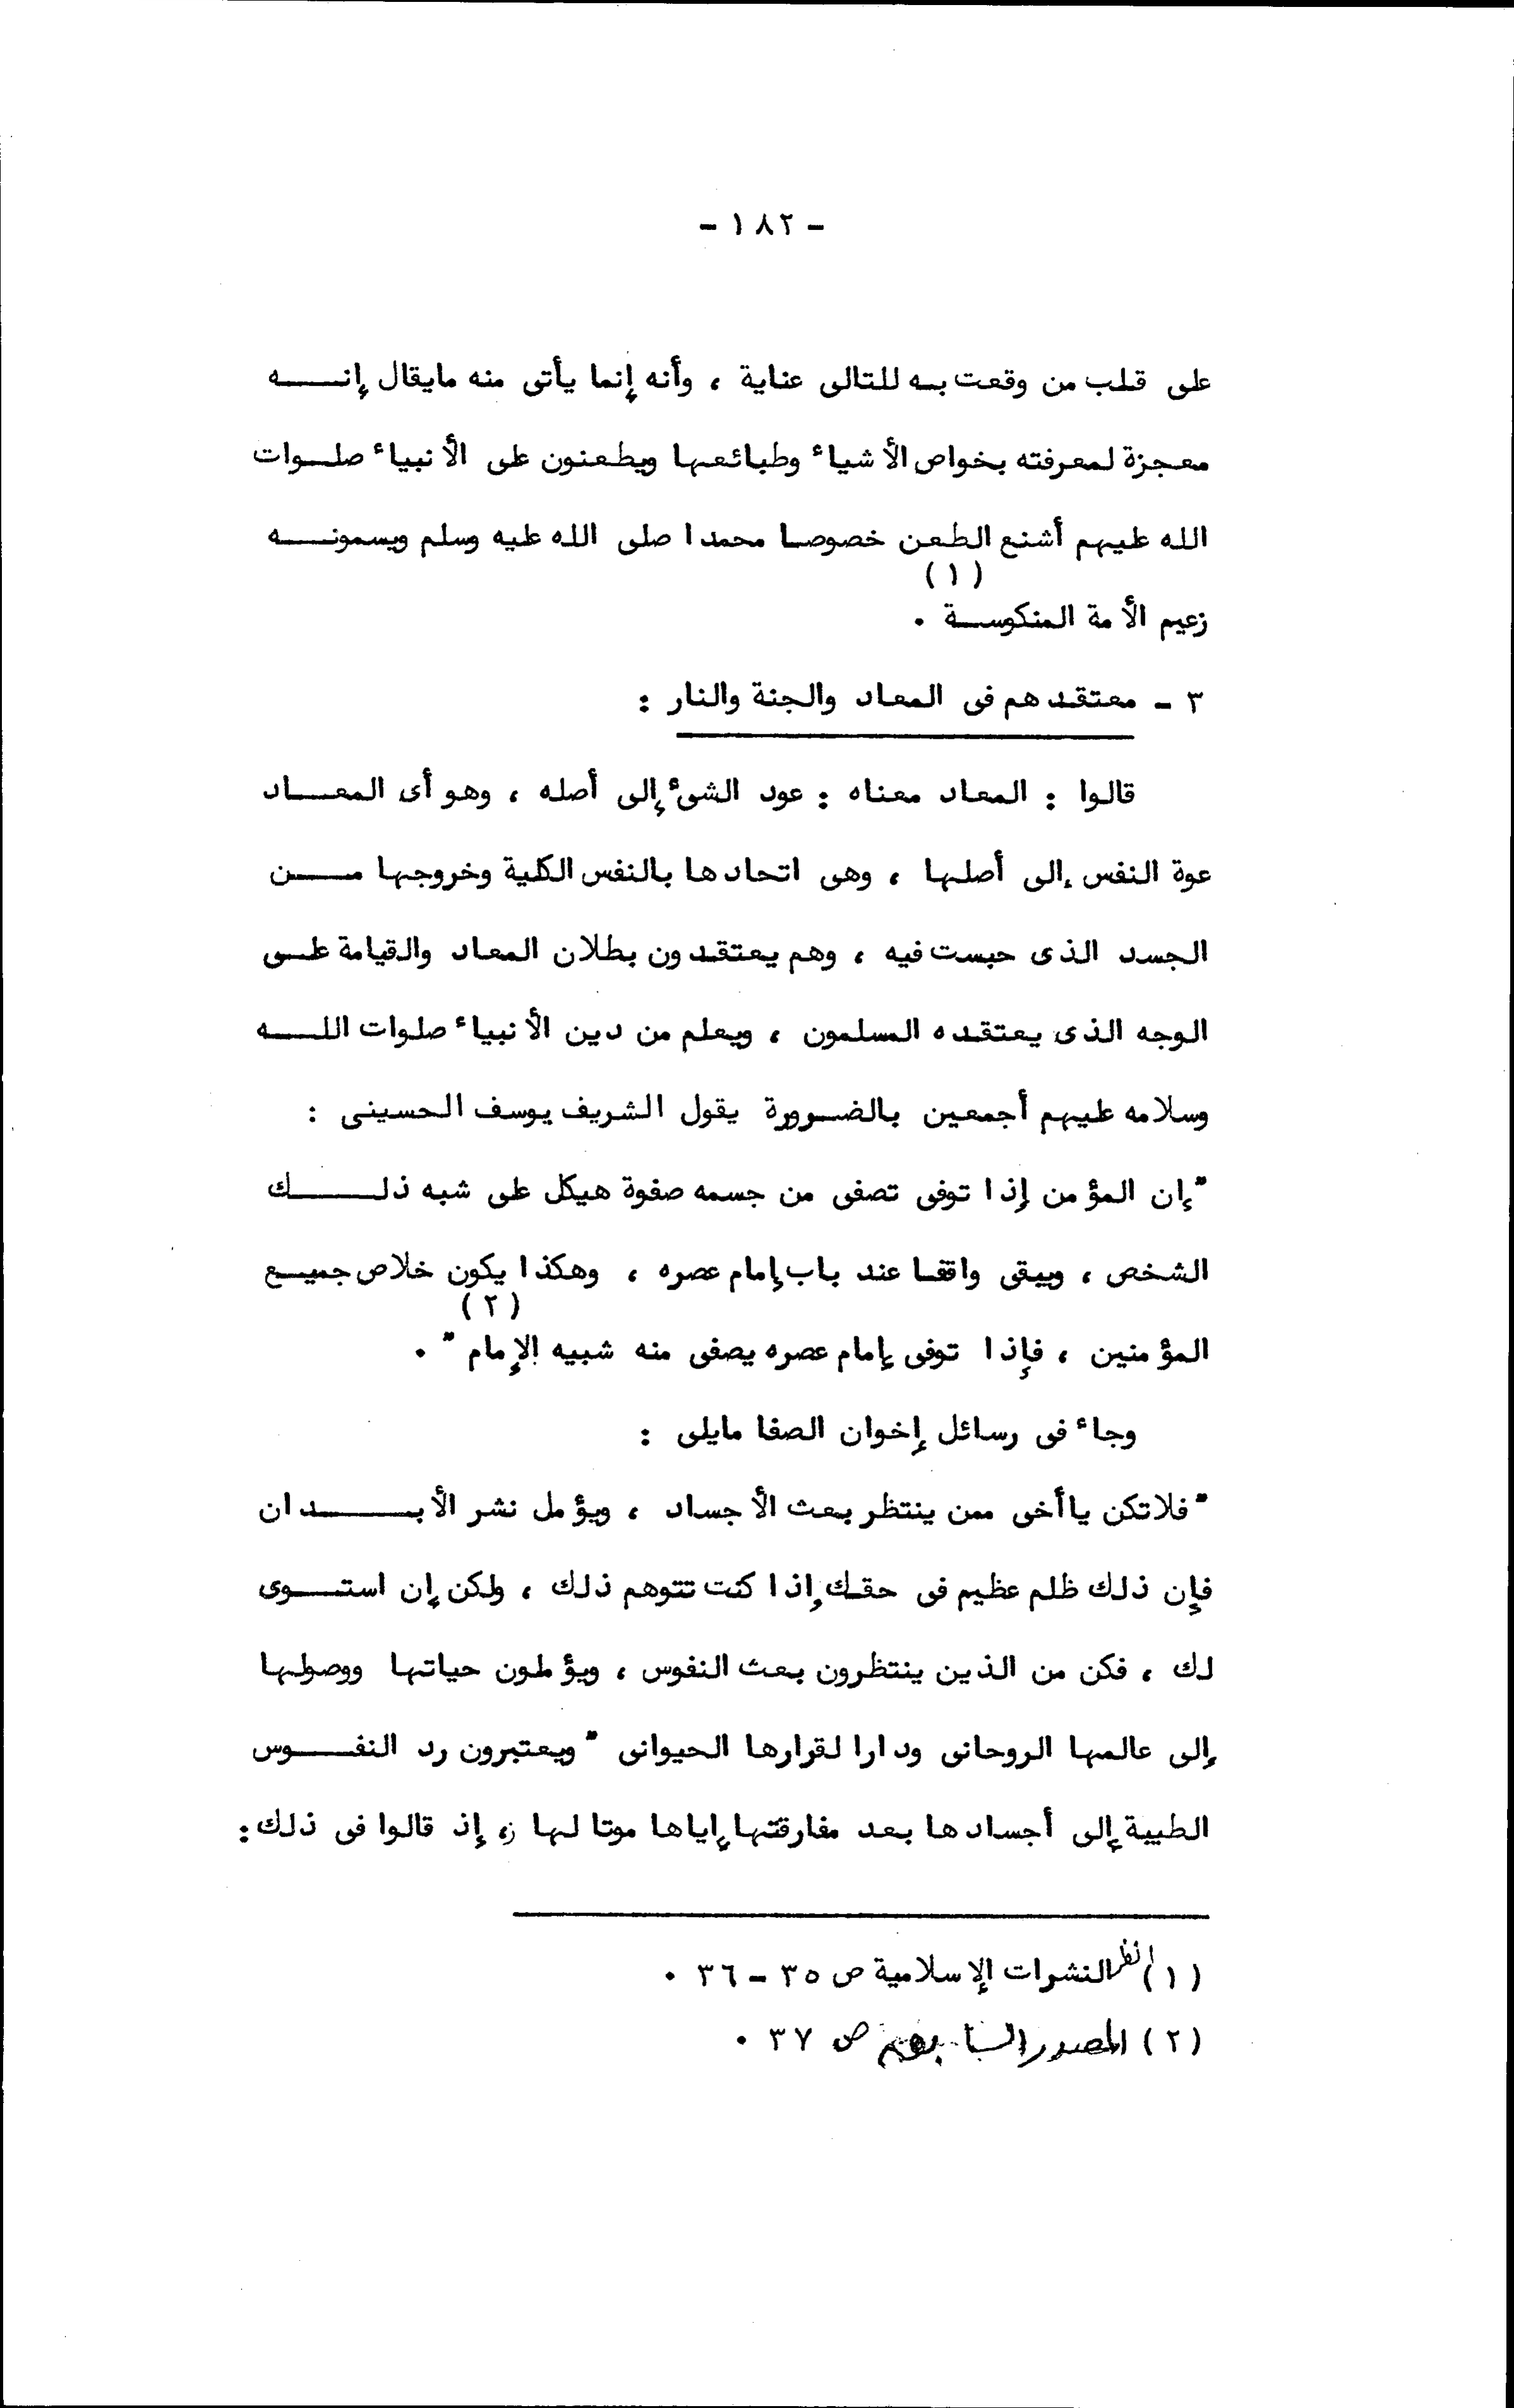 - ١٨٢ -
على قلب من وقعت به للتالى عناية ، وأنه إنما يأتى منه مايقال إنه
معجزة لمعرفته بخواص الأشياء وطبائعها ويطعنون على الأنبياء صلوات
الله عليهم أشنع الطعن خصوصا محمدا صلى الله عليه وسلم ويسمونه
زعيم الأمة المنكوسة (١) .
٣ - معتقدهم فى المعاد والجنة والنار :
قالوا : المعاد معناه : عود الشىء إلى أصله ، وهو أى المعاد
عوة النفس إلى أصلها ، وهى اتحادها بالنفس الكلية وخروجها من
الجسد الذى حبست فيه ، وهم يعتقدون بطلان المعاد والقيامة على
الوجه الذى يعتقده المسلمون ، ويعلم من دين الأنبياء صلوات الله
وسلامه عليهم أجمعين بالضرورة يقول الشريف يوسف الحسينى :
"إن المؤمن إذا توفى تصفى من جسمه صفوة هيكل على شبه ذلك
الشخص ، ويبقى واقفا عند باب إمام عصره ، وهكذا يكون خلاص جميع
المؤمنين ، فإذا توفى إمام عصره يصفى منه شبيه الإمام " (٢) .
وجاء فى رسائل إخوان الصفا مايلى :
"فلاتكن ياأخى ممن ينتظر بعث الأجساد ، ويؤمل نشر الأبدان
فإن ذلك ظلم عظيم فى حقك إذا كنت تتوهم ذلك ، ولكن إن استوى
لك ، فكن من الذين ينتظرون بعث النفوس ، ويؤملون حياتها ووصولها
إلى عالمها الروحانى ودارا لقرارها الحيوانى " ويعتبرون رد النفوس
الطيبة إلى أجسادها بعد مفارقتها إياها موتا لها ، إذ قالوا فى ذلك :
(١) انظر النشرات الإسلامية ص ٣٥ - ٣٦ .
(٢) المصدر السابق ص ٣٧ .